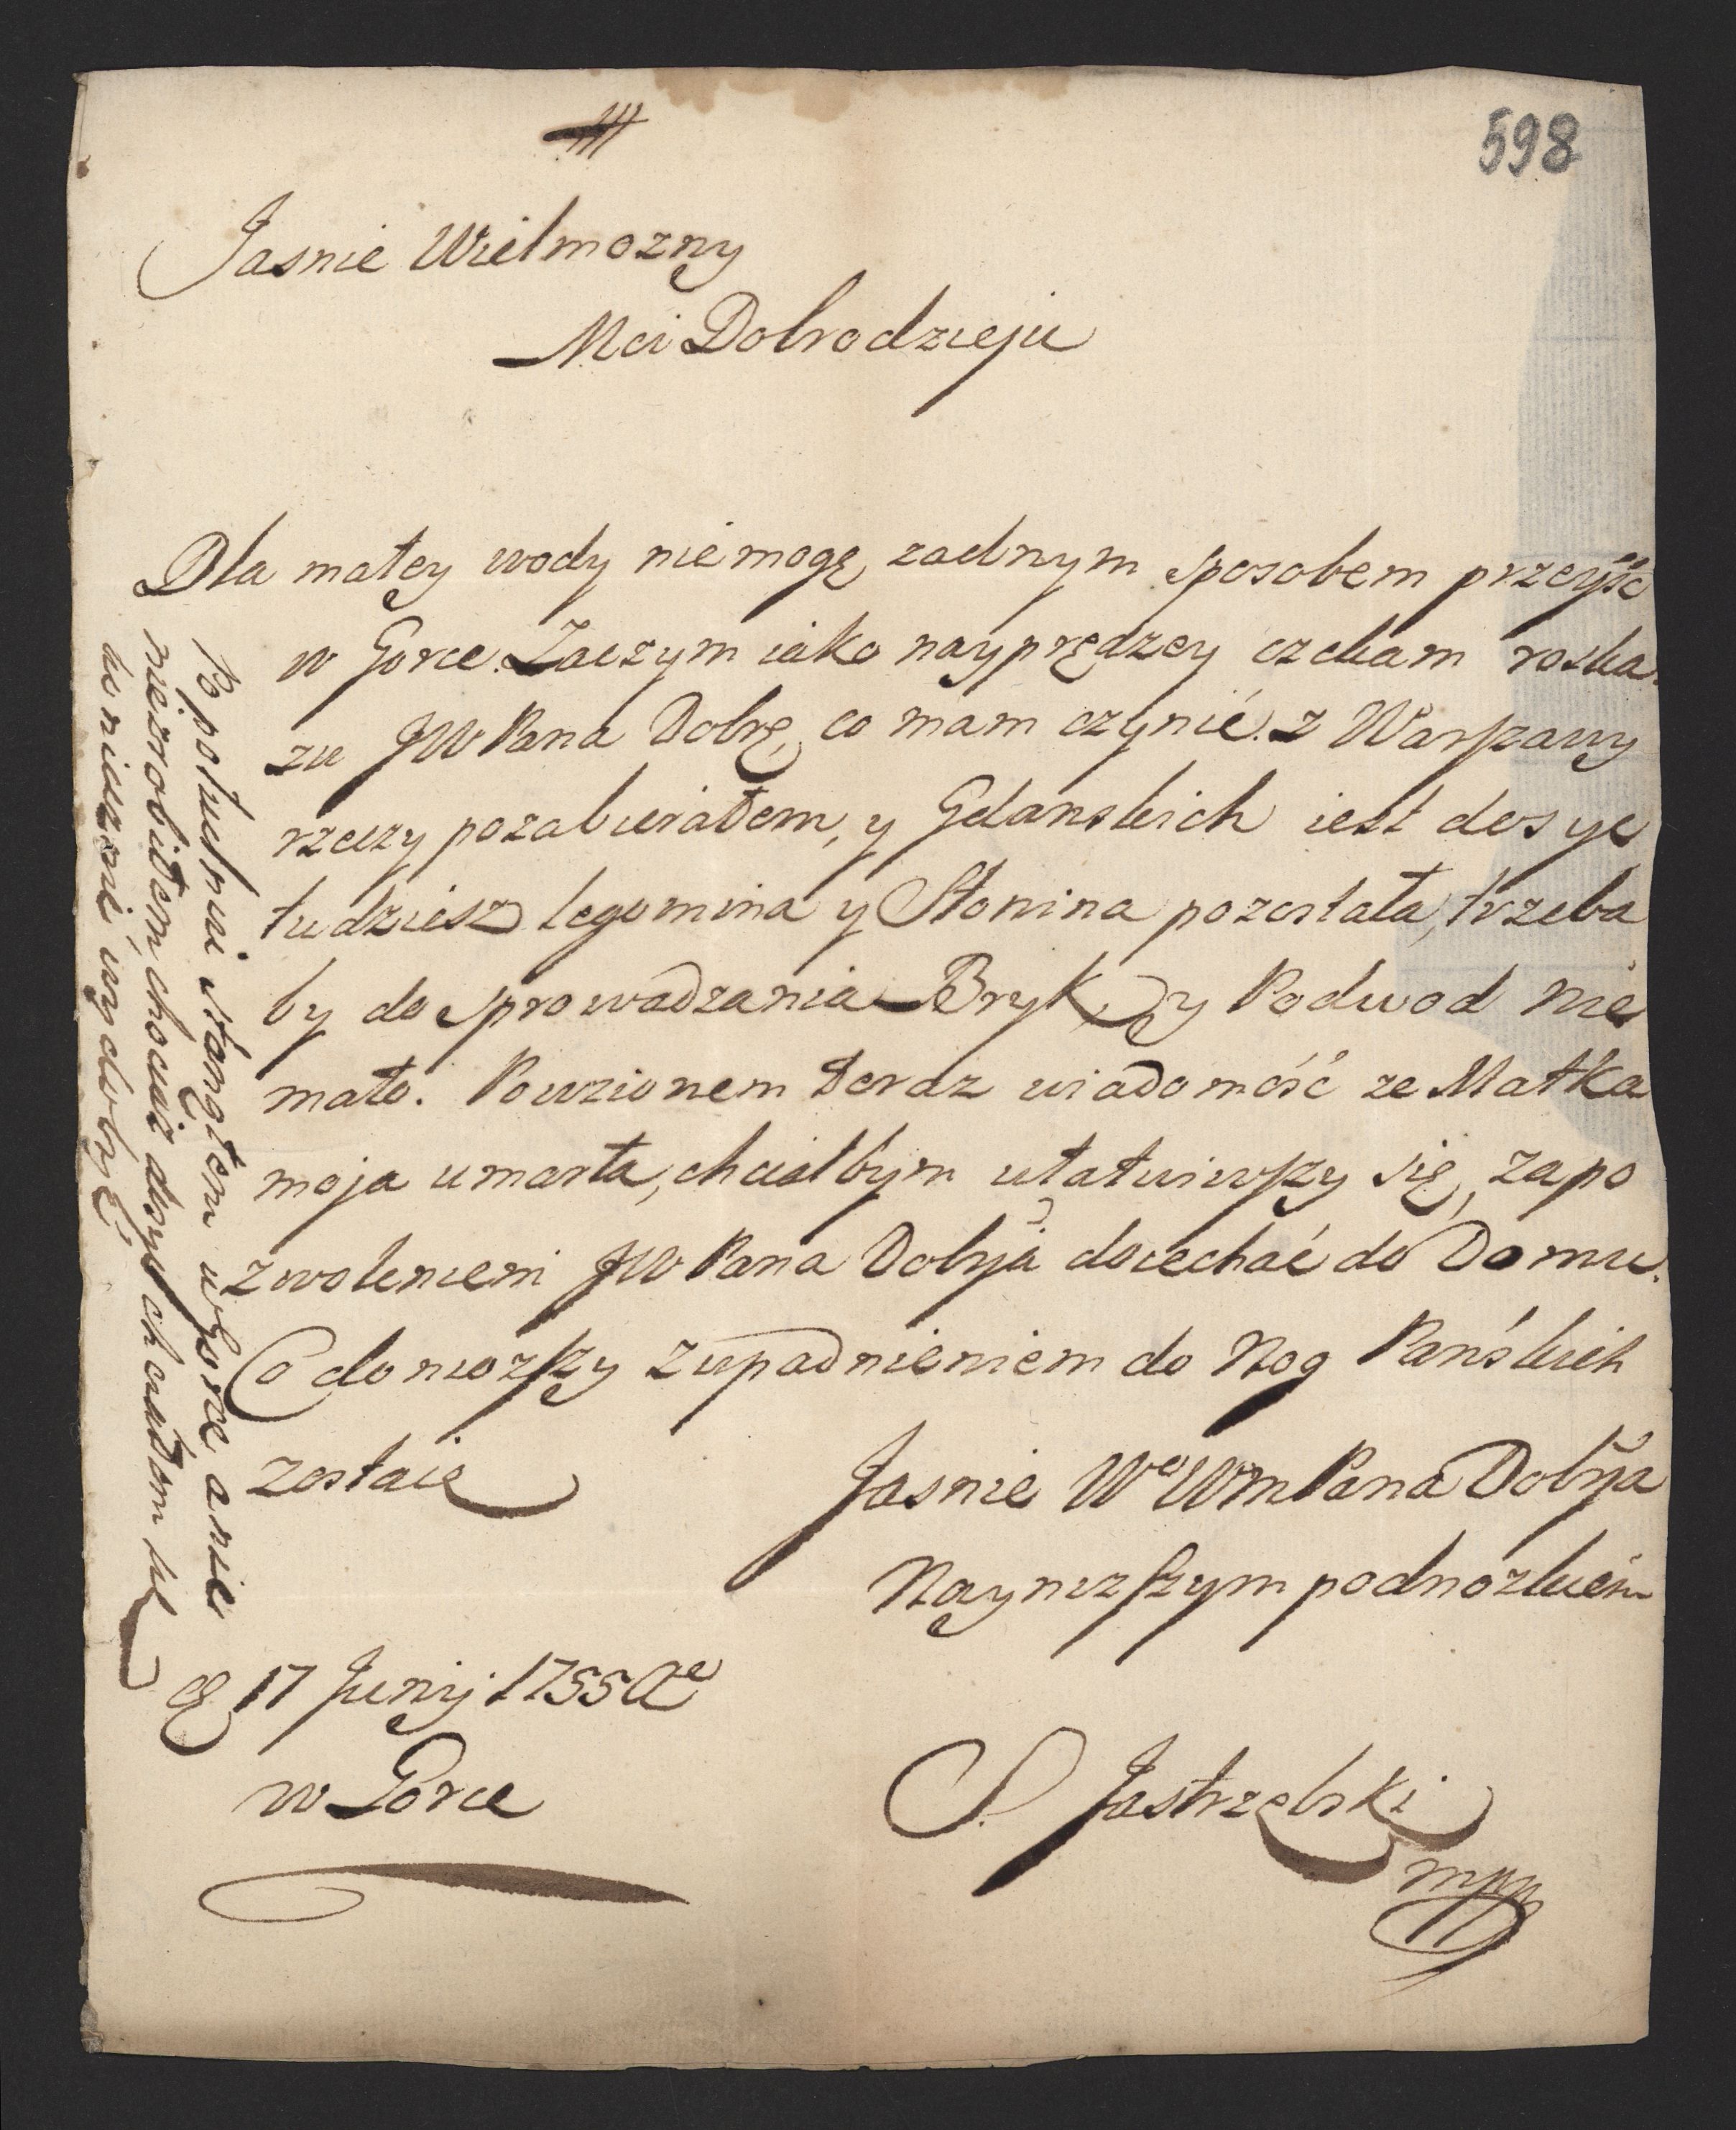 598
Jasnie Wielmozny
Mci Dobrodzieju
Dla małey wody niemogę zadnym sposobem przeyść
w Gorce. Zaczym iako nayprędzey czekam roska-
zu JW Pana Dobrę, co mam czynić. z Warszawy
rzeczy pozabierałem, y Gdanskich iest dosyc
tudziesz legomina y Słonina pozostała, trzeba
by do sprowadzania Bryk y Podwod nie
mało. Powzionem teraz wiadomość ze Matka
moja umarła, chciałbym ułatwiwszy się, zapo
zwoleniem JW Pana Dobrja doiechać do Domu.
Co doniozszy zupadnieniem do Nog Pańskich
zostaię
Jasnie Wo WmPana Dobrja
Nayniższym podnozkiem
S. Jastrzębski
mpp
17 Junij 1755
w Gorce
B południu stanąłem w Gorce a nic
niezrobiłem, chociaż dosyć chciałem się
do niczoni wydobyć